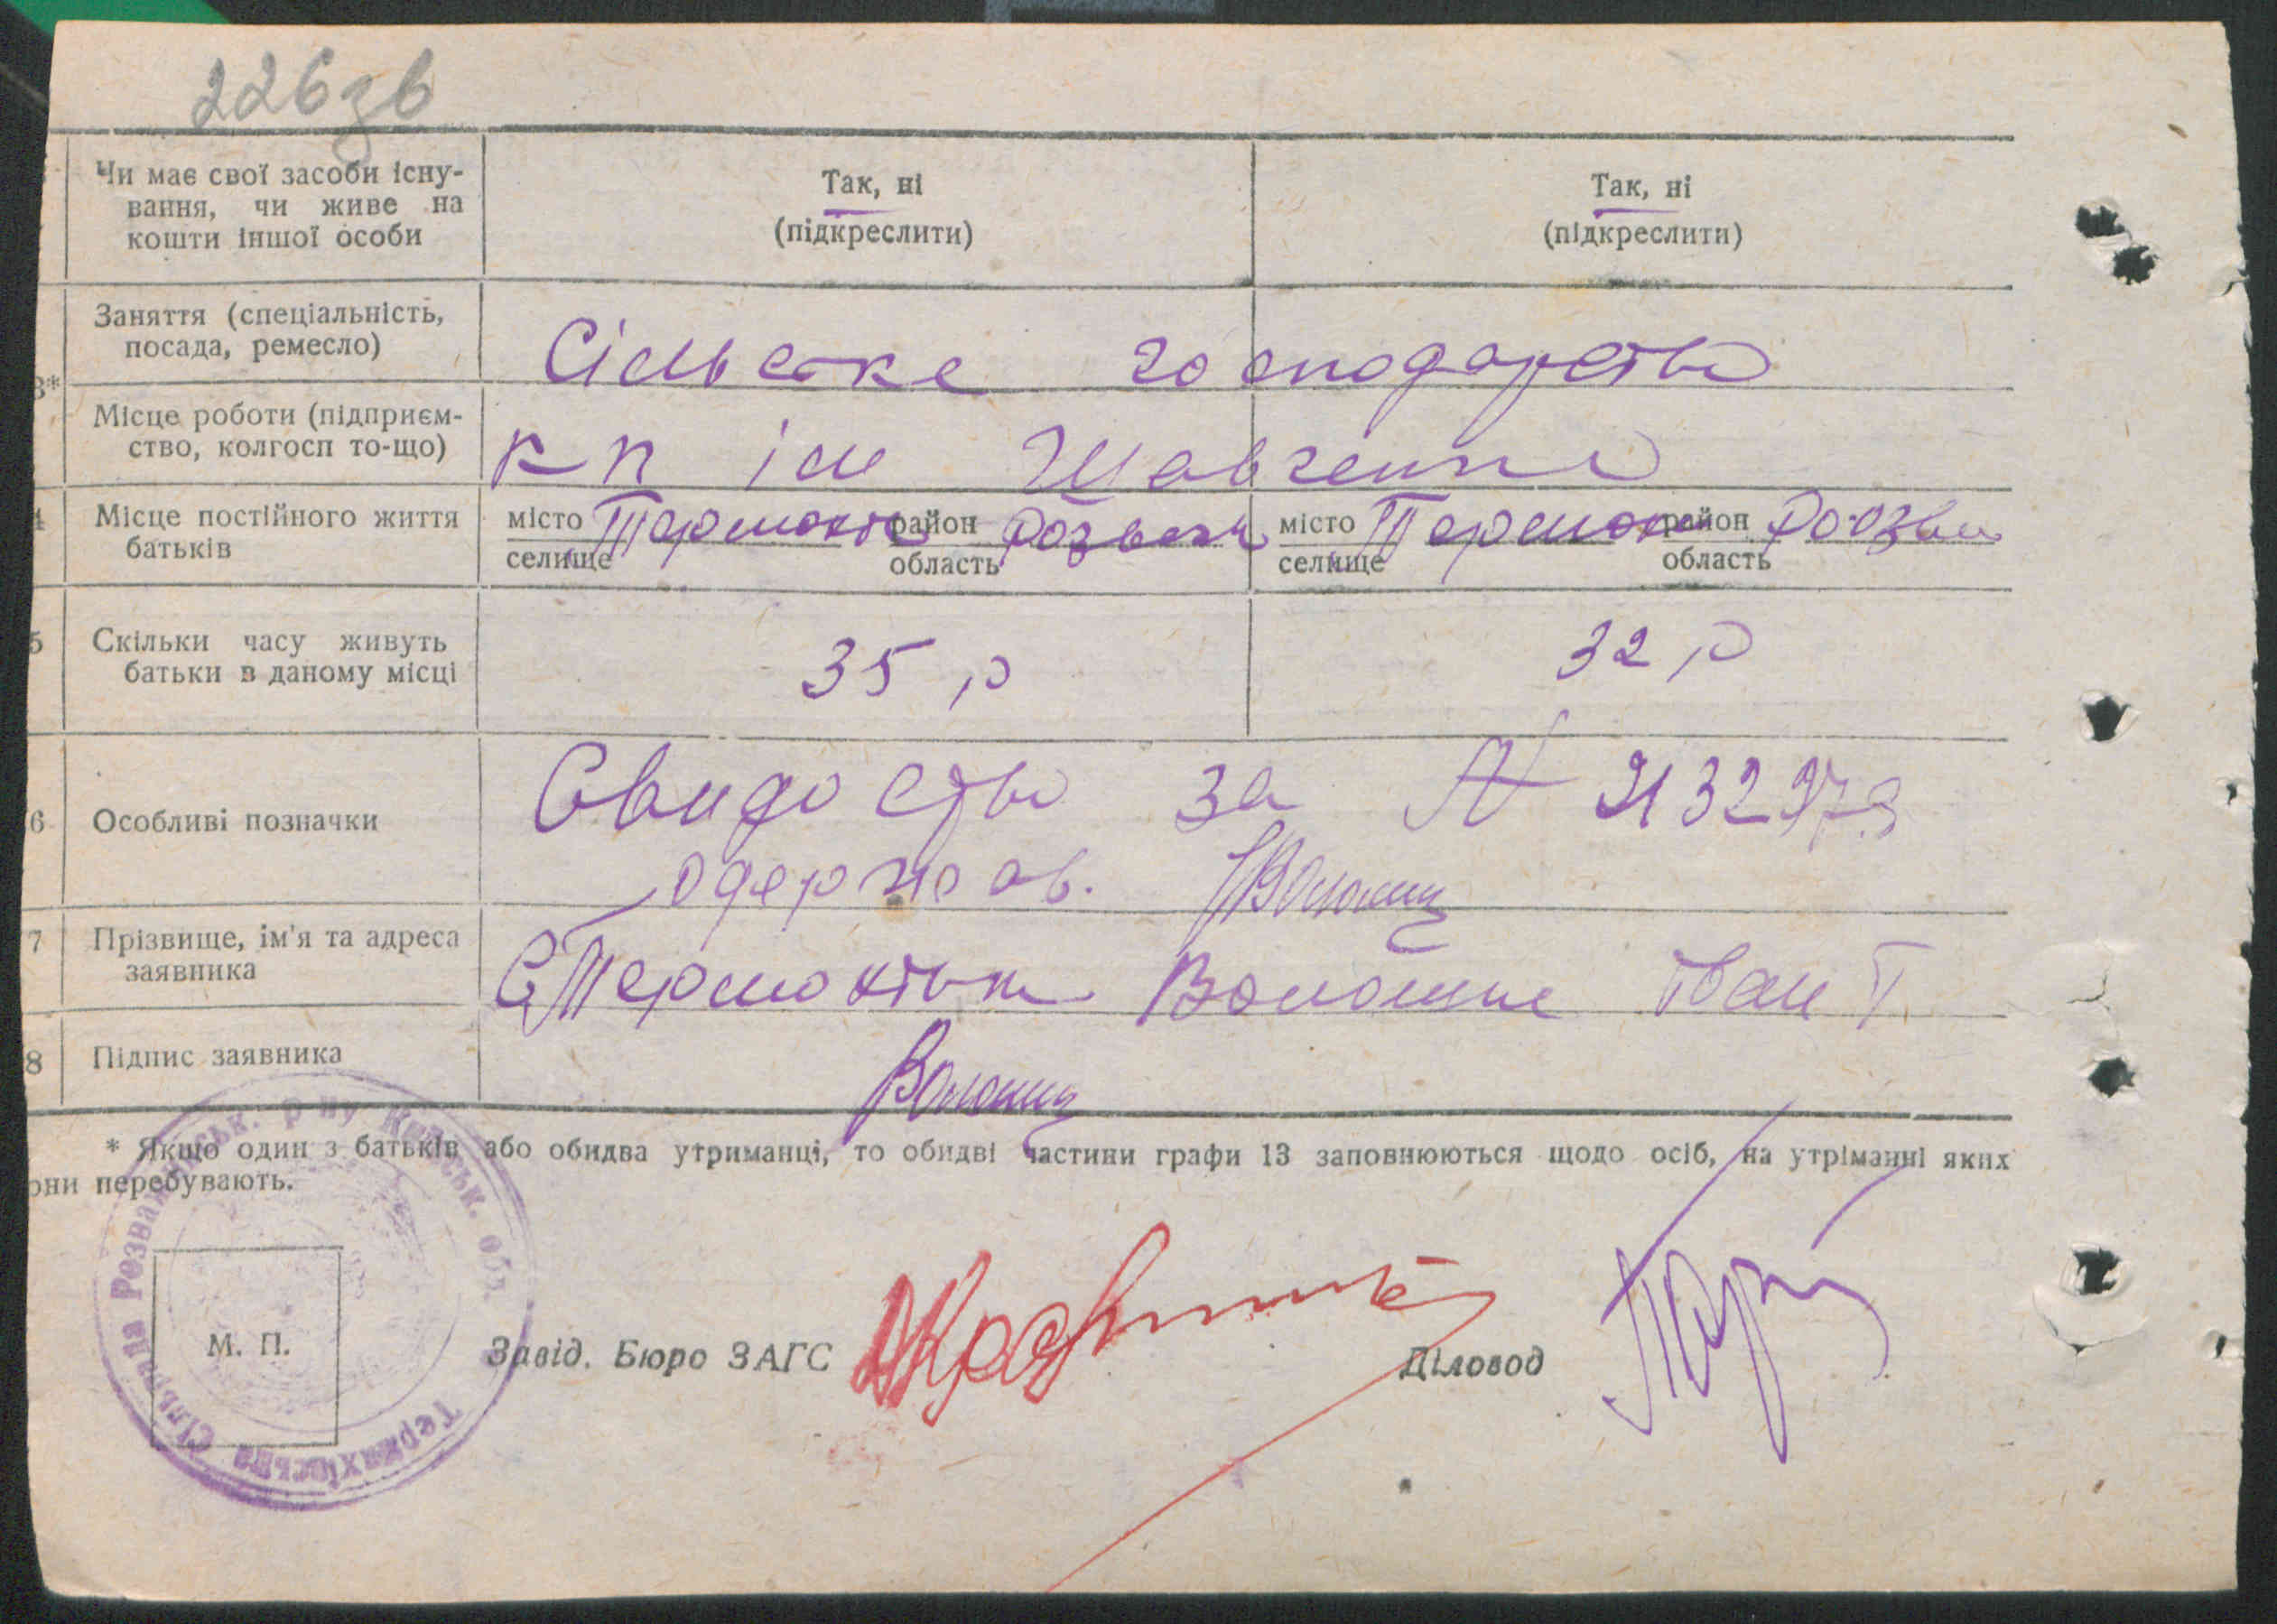 226зв
Чи має свої засоби існу-
вання, чи живе на
кошти іншої особи
Так, ні
(підкреслити)
Так, ні
(підкреслити)
3*
Заняття (спеціальність,
посада, ремесло)
Сільське господарство
Місце роботи (підприєм-
ство, колгосп то-що)
кп ім Шевченка
4
Місце постійного життя
батьків
місто
селище
район
область
місто
селище
район
область
5
Скільки часу живуть
батьки в даному місці
35 р
32 р
6
Особливі позначки
за N
одержав.
7
Прізвище, ім'я та адреса
заявника
Іван Т.
8
Підпис заявника
* Якщо один з батьків або обидва утриманці, то обидві частини графи 13 заповнюються щодо осіб, на утріманні яких
они перебувають.
М. П.
Завід. Бюро ЗАГС
Діловод
Термахівська Сільрада Розважівськ. р-ну Київськ. обл.